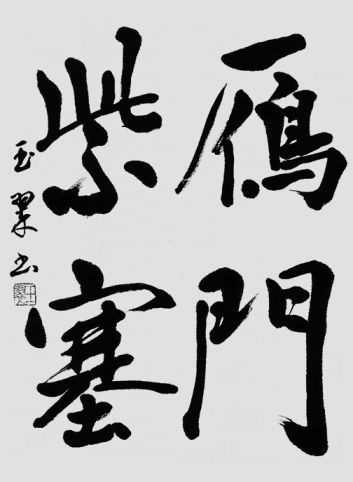 鴈門
紫塞
玉翠书